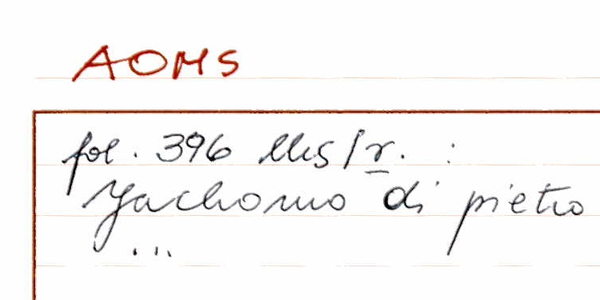 AOMS
fol. 396 lus/r. :
Jachomo di pietro
...